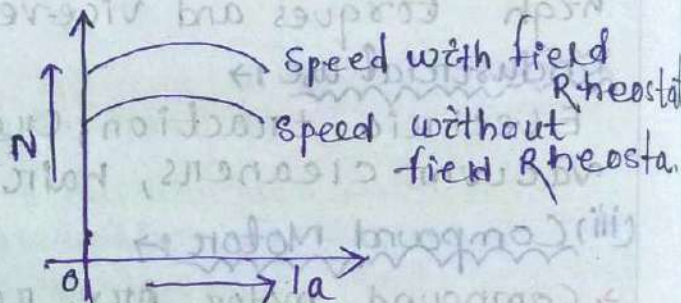 Speed with field
Rheostat
N
Speed without
field Rheosta
0
Ia